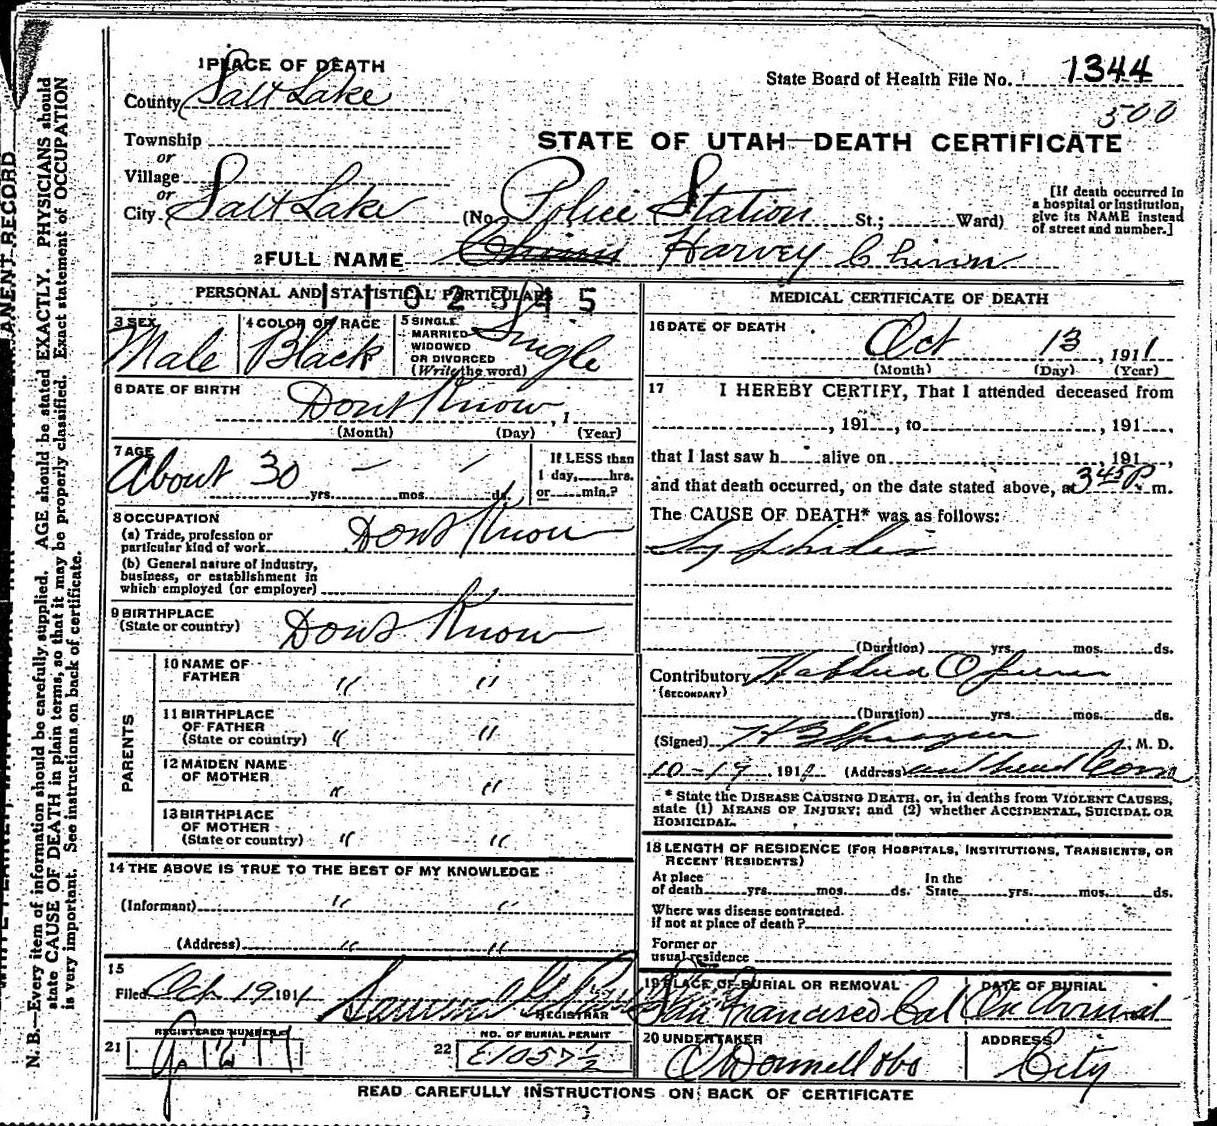 1 PLACE OF DEATH
County Salt Lake
State Board of Health File No. 1344
500
Township
or
Village
or
City Salt Lake
STATE OF UTAH—DEATH CERTIFICATE
(No. Police Station St.; Ward)
[If death occurred in
a hospital or institution,
give its NAME instead
of street and number.]
2 FULL NAME Harvey Chinn
PERSONAL AND STATISTICAL PARTICULARS
1102345
3 SEX
Male
4 COLOR OR RACE
Black
5 SINGLE
MARRIED
WIDOWED
OR DIVORCED
(Write the word)
Single
6 DATE OF BIRTH
Dont Know, 1
(Month) (Day) (Year)
7 AGE
About 30 yrs. mos. ds.
If LESS than
1 day, hrs.
or min.?
8 OCCUPATION
(a) Trade, profession or
particular kind of work Dont Know
(b) General nature of industry,
business, or establishment in
which employed (or employer)
9 BIRTHPLACE
(State or country) Dont Know
PARENTS
10 NAME OF
FATHER " "
11 BIRTHPLACE
OF FATHER
(State or country) " "
12 MAIDEN NAME
OF MOTHER " "
13 BIRTHPLACE
OF MOTHER
(State or country) " "
14 THE ABOVE IS TRUE TO THE BEST OF MY KNOWLEDGE
(Informant) " "
(Address) " "
15
Filed Oct 19 1911
REGISTRAR
REGISTERED NUMBER
21
NO. OF BURIAL PERMIT
22 E1057½
MEDICAL CERTIFICATE OF DEATH
16 DATE OF DEATH
Oct 13, 1911
(Month) (Day) (Year)
17 I HEREBY CERTIFY, That I attended deceased from
, 191 , to , 191 ,
that I last saw h alive on 191 ,
and that death occurred, on the date stated above, at 3 45 P. m.
The CAUSE OF DEATH* was as follows:
Syphilis
(Duration) yrs. mos. ds.
Contributory
(SECONDARY)
(Duration) yrs. mos. ds.
(Signed) H B Sprague, M. D.
10-19, 191 (Address)
* State the DISEASE CAUSING DEATH, or, in deaths from VIOLENT CAUSES,
state (1) MEANS OF INJURY; and (2) whether ACCIDENTAL, SUICIDAL OR
HOMICIDAL.
18 LENGTH OF RESIDENCE (FOR HOSPITALS, INSTITUTIONS, TRANSIENTS, OR
RECENT RESIDENTS)
At place In the
of death yrs. mos. ds. State yrs. mos. ds.
Where was disease contracted.
if not at place of death?
Former or
usual residence
19 PLACE OF BURIAL OR REMOVAL
San Francisco Cal
DATE OF BURIAL
On Arrival
20 UNDERTAKER
O'Donnell & Co
ADDRESS
City
READ CAREFULLY INSTRUCTIONS ON BACK OF CERTIFICATE
N. B.—Every item of information should be carefully supplied. AGE should be stated EXACTLY. PHYSICIANS should
state CAUSE OF DEATH in plain terms, so that it may be properly classified. Exact statement of OCCUPATION
is very important. See instructions on back of certificate.